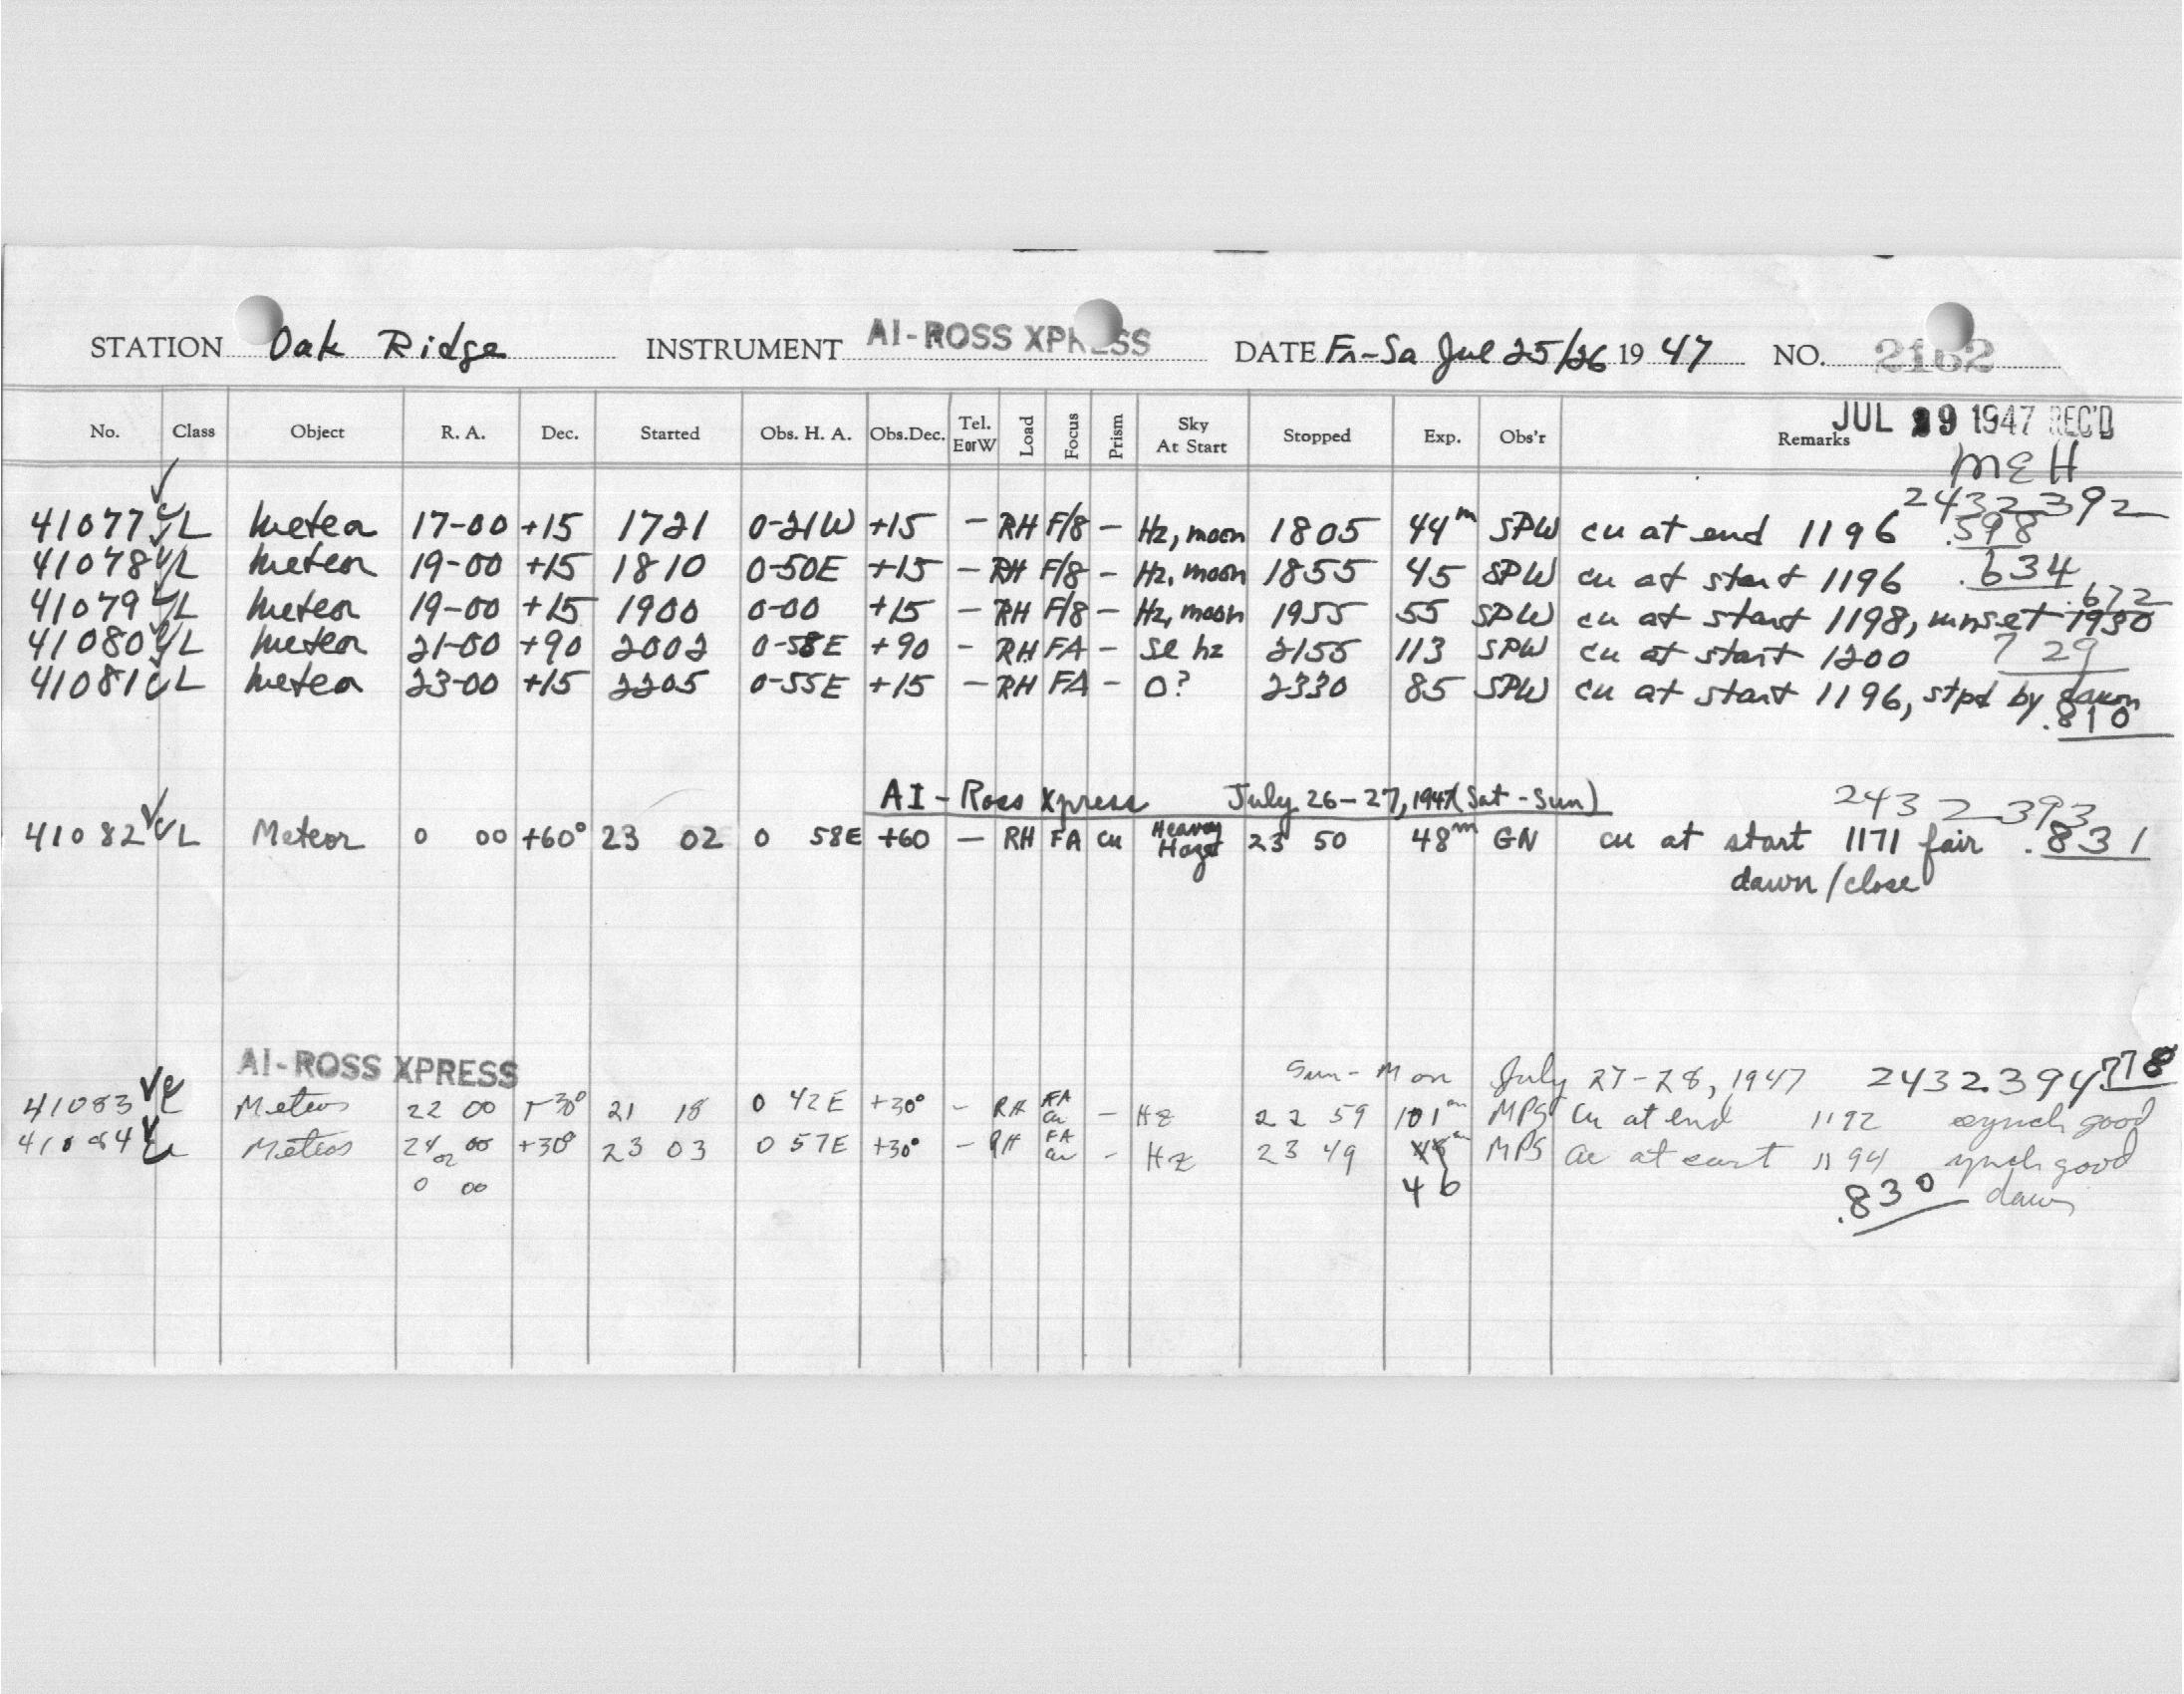 STATION Oak Ridge INSTRUMENT AI-ROSS XPRESS DATE Fr-Sa Jul 25/26 19 47 NO. 2162
JUL 29 1947 REC'D
No. Class Object R. A. Dec. Started Obs. H. A. Obs. Dec. Tel. E or W Load Focus Prism Sky At Start Stopped Exp. Obs'r Remarks
MEH
2432392
41077 L Meteor 17-00 +15 1721 0-21W +15 - RH F/8 - Hz, moon 1805 44m SPW cu at end 1196 .598
41078 L Meteor 19-00 +15 1810 0-50E +15 - RH F/8 - Hz, moon 1855 45 SPW cu at start 1196 .634
41079 L Meteor 19-00 +15 1900 0-00 +15 - RH F/8 - Hz, moon 1955 55 SPW cu at start 1198, mnset 1930 .672
41080 L Meteor 21-00 +90 2002 0-58E +90 - RH FA - Sl hz 2155 113 SPW cu at start 1200 729
41081 L Meteor 23-00 +15 2205 0-55E +15 - RH FA - 0? 2330 85 SPW cu at start 1196, stpd by dawn
.810
AI - Ross Xpress July 26-27, 1947 (Sat-Sun) 2432393
41082 L Meteor 0 00 +60° 23 02 0 58E +60 - RH FA cu Heavy Haze 23 50 48m GN cu at start 1171 fair .831
dawn/close
AI-ROSS XPRESS Sun-Mon July 27-28, 1947 2432394 .778
41083 Meteor 22 00 +30° 21 18 0 42E +30° - RH FA cu - Hz 22 59 101m MPS Cu at end 1192 synch good
41084 Meteor 24 00 +30° 23 03 0 57E +30° - RH FA cu - Hz 23 49 MPS cu at east 1194 synch good
or 0 00 46 .830 dawn